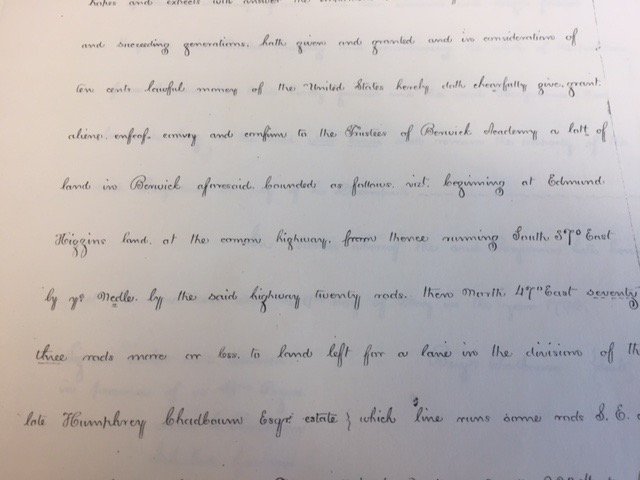 hopes and expects will answer the
and succeeding generations, hath given and granted and in consideration of
ten cents lawful money of the United States hereby doth chearfully give, grant.
aliene, enfeof, convey and confirm to the Trustees of Berwick Academy a lott of
land in Berwick aforesaid, bounded as follows. vizt. beginning at Edmund
Higgins land, at the comon highway, from thence running South 37° East
by ye Nedle, by the said highway twenty rods. then North 47° East seventy
three rods more or less, to land left for a lane in the division of th
late Humphrey Chadbourn Esqrs estate } which line runs some rods S. E.